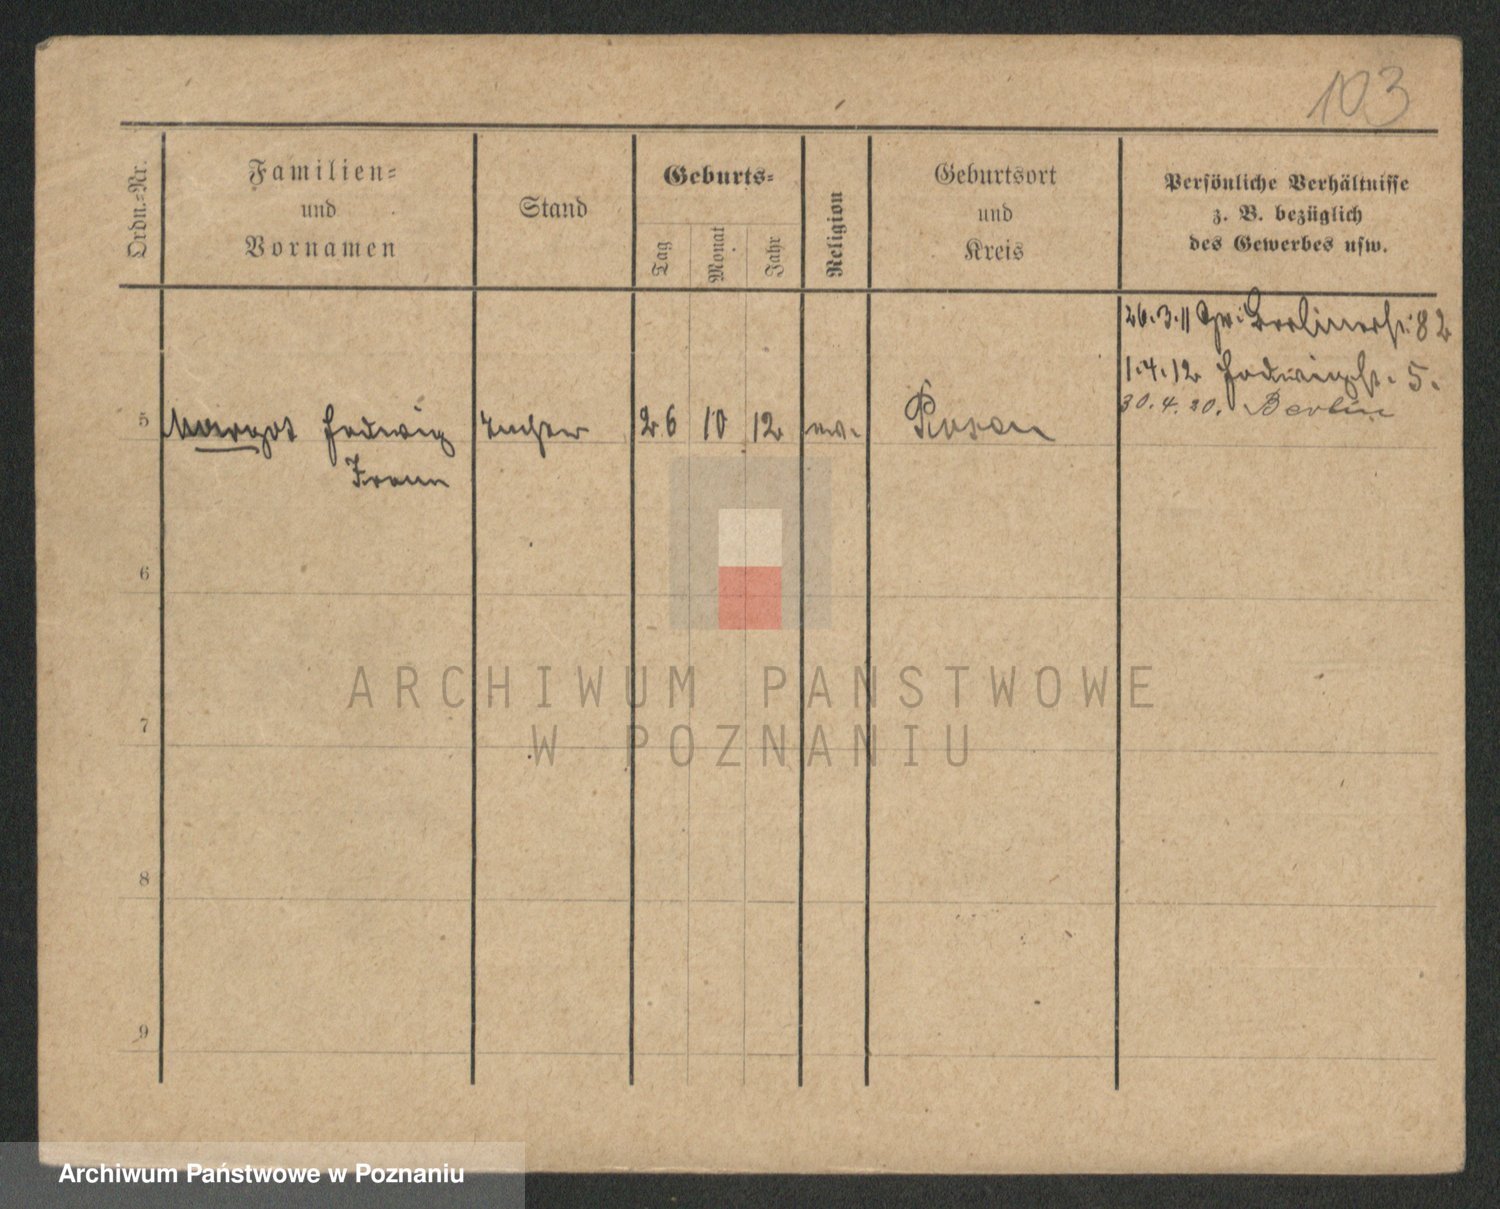 103
Ordn.-Nr.
Familien-
und
Vornamen
Stand
Geburts-
Tag
Monat
Jahr
Religion
Geburtsort
und
Kreis
Persönliche Verhältnisse
z. B. bezüglich
des Gewerbes usw.
26.3.11 Berlinerstr. 82
1.4.12 Hedwigstr. 5.
30.4.20. Berlin
5 Margot Hedwig Tochter 26 10 12 ev. Posen
Irene
6
7
8
9
ARCHIWUM PAŃSTWOWE
W POZNANIU
Archiwum Państwowe w Poznaniu